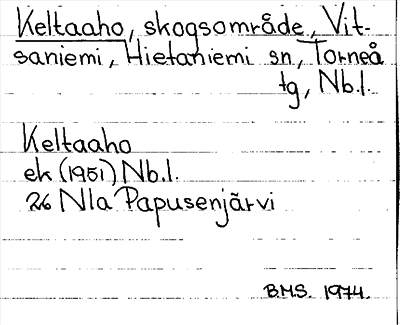 Keltaaho, skogsområde, Vit-
saniemi, Hietaniemi sn, Torneå
tg, Nb.l.
Keltaaho
ek (1951) Nb.l.
26 Nla Papusenjärvi
B.M.S. 1974.